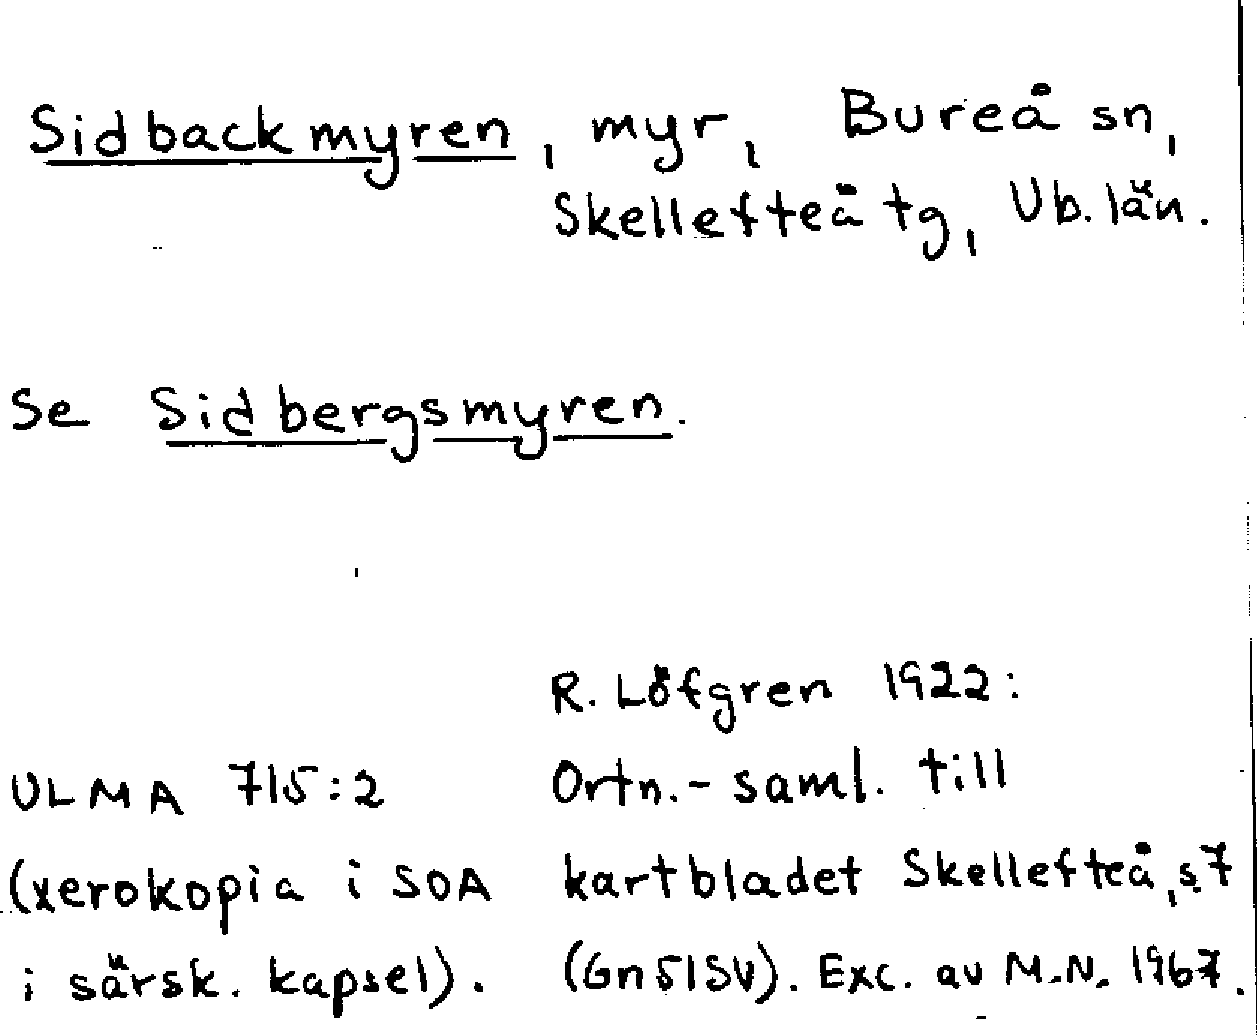 Sidbackmyren, myr, Bureå sn,
Skellefteå tg, Vb. län.
Se Sidbergsmyren.
R. Löfgren 1922:
ULMA 715:2 Ortn.-saml. till
(xerokopia i SOA kartbladet Skellefteå, s.7
i särsk. kapsel). (Gn 51SV). Exc. av M.N. 1967.